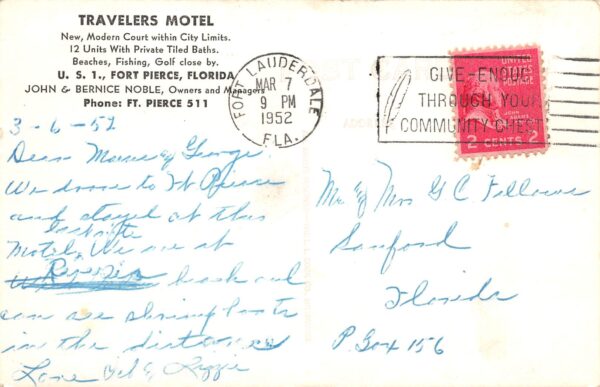 TRAVELERS MOTEL
New, Modern Court within City Limits.
12 Units With Private Tiled Baths.
Beaches, Fishing, Golf close by.
U. S. 1., FORT PIERCE, FLORIDA
JOHN & BERNICE NOBLE, Owners and Managers
Phone: FT. PIERCE 511
FORT LAUDERDALE
MAR 7
9 PM
1952
FLA.
GIVE-ENOUGH
THROUGH YOUR
COMMUNITY CHEST
UNITED STATES POSTAGE
JOHN ADAMS
2 CENTS 2
3-6-52
Dear Marie & George
We drove to Ft Pierce
and stayed at this
last nite
Motel. We are at
Riviera beach and
can see shrimp boats
in the distance
Love Bel & Lizzie
Mr & Mrs G C Fellows
Sanford
Florida
P O Box 156